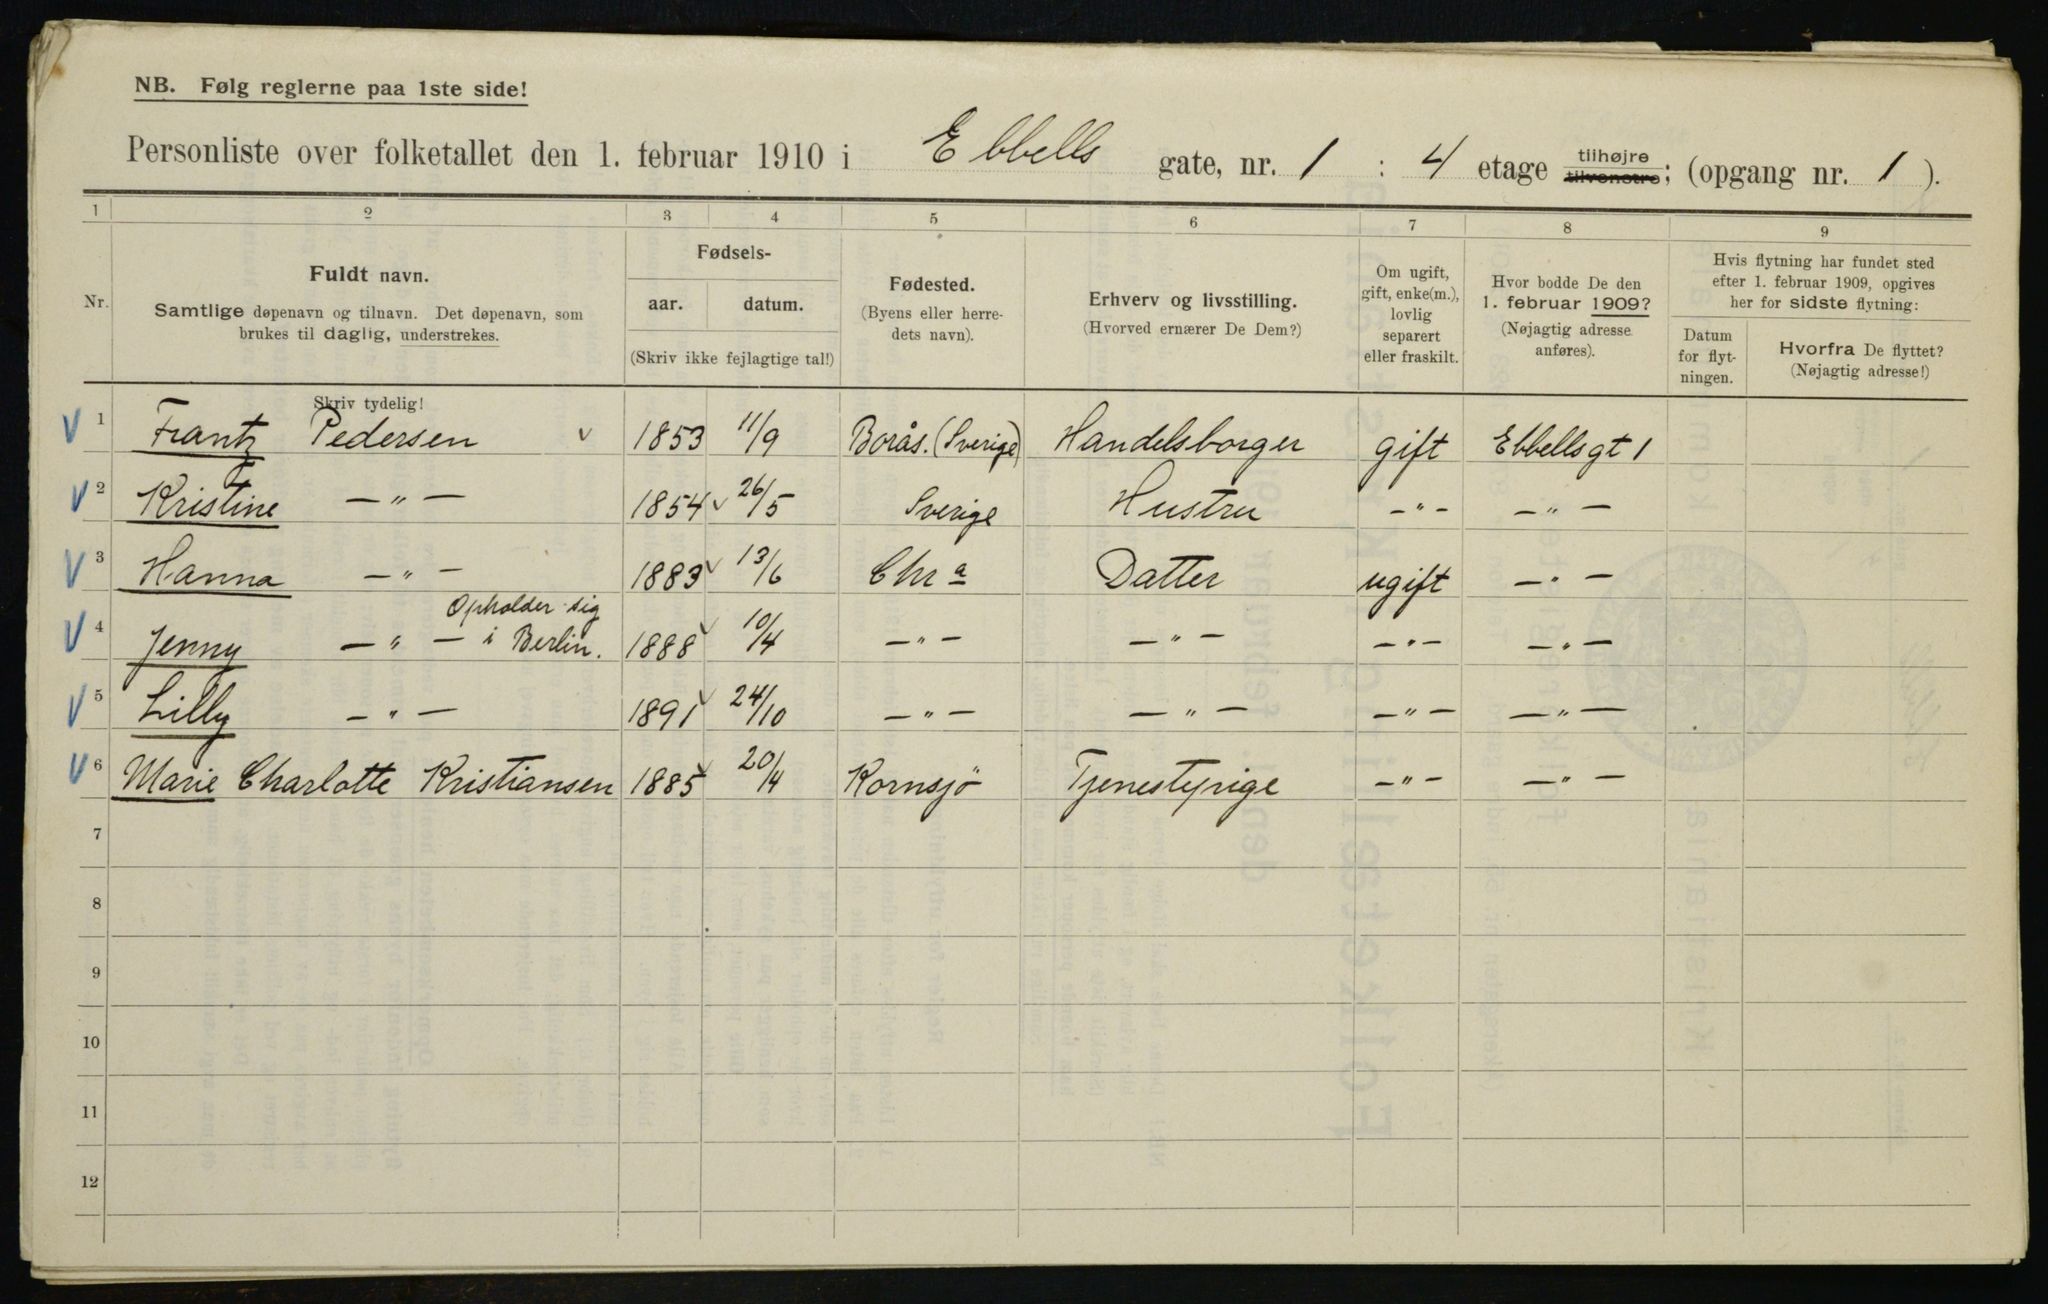 NB. Følg reglerne paa 1ste side!
Personliste over folketallet den 1. februar 1910 i Ebbells gate, nr. 1 : 4 etage tilhøjre tilvenstre; (opgang nr. 1).
1 2 3 4 5 6 7 8 9
Nr.
Fuldt navn.
Samtlige døpenavn og tilnavn. Det døpenavn, som
brukes til daglig, understrekes.
Skriv tydelig!
Fødsels-
aar. datum.
(Skriv ikke fejlagtige tal!)
Fødested.
(Byens eller herre-
dets navn).
Erhverv og livsstilling.
(Hvorved ernærer De Dem?)
Om ugift,
gift, enke(m.),
lovlig
separert
eller fraskilt.
Hvor bodde De den
1. februar 1909?
(Nøjagtig adresse
anføres).
Hvis flytning har fundet sted
efter 1. februar 1909, opgives
her for sidste flytning:
Datum
for flyt-
ningen.
Hvorfra De flyttet?
(Nøjagtig adresse!)
1 Frantz Pedersen 1853 11/9 Borås. (Sverige) Handelsborger gift Ebbellsgt 1
2 Kristine —„— 1854 26/5 Sverige Hustru -„- —„—
3 Hanna —„— 1883 13/6 Chr a Datter ugift —„—
4 Jenny —„— Opholder sig i Berlin. 1888 10/4 —„— —„— —„— —„—
5 Lilly —„— 1891 24/10 —„— —„— —„— —„—
6 Marie Charlotte Kristiansen 1885 20/4 Kornsjö Tjenestepige —„— —„—
7
8
9
10
11
12